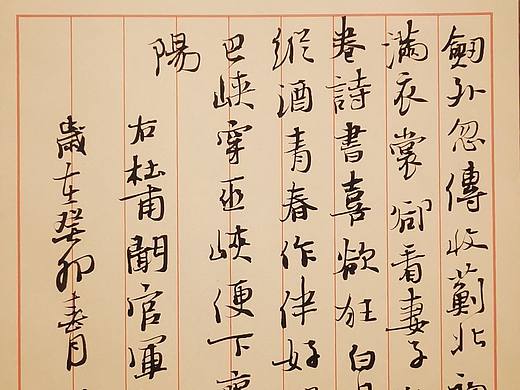 劍外忽傳收薊北
滿衣裳卻看妻子
卷詩書喜欲狂白
縱酒青春作伴好
巴峽穿巫峽便下襄
陽
右杜甫聞官軍
歲在癸卯春月